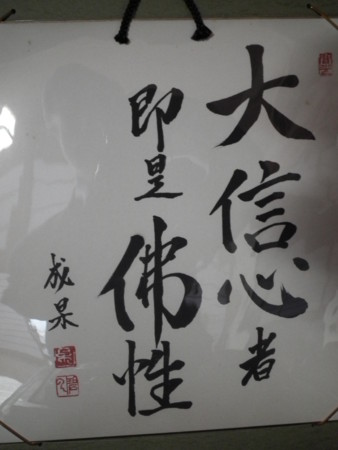 大信心者
即是佛性
成果